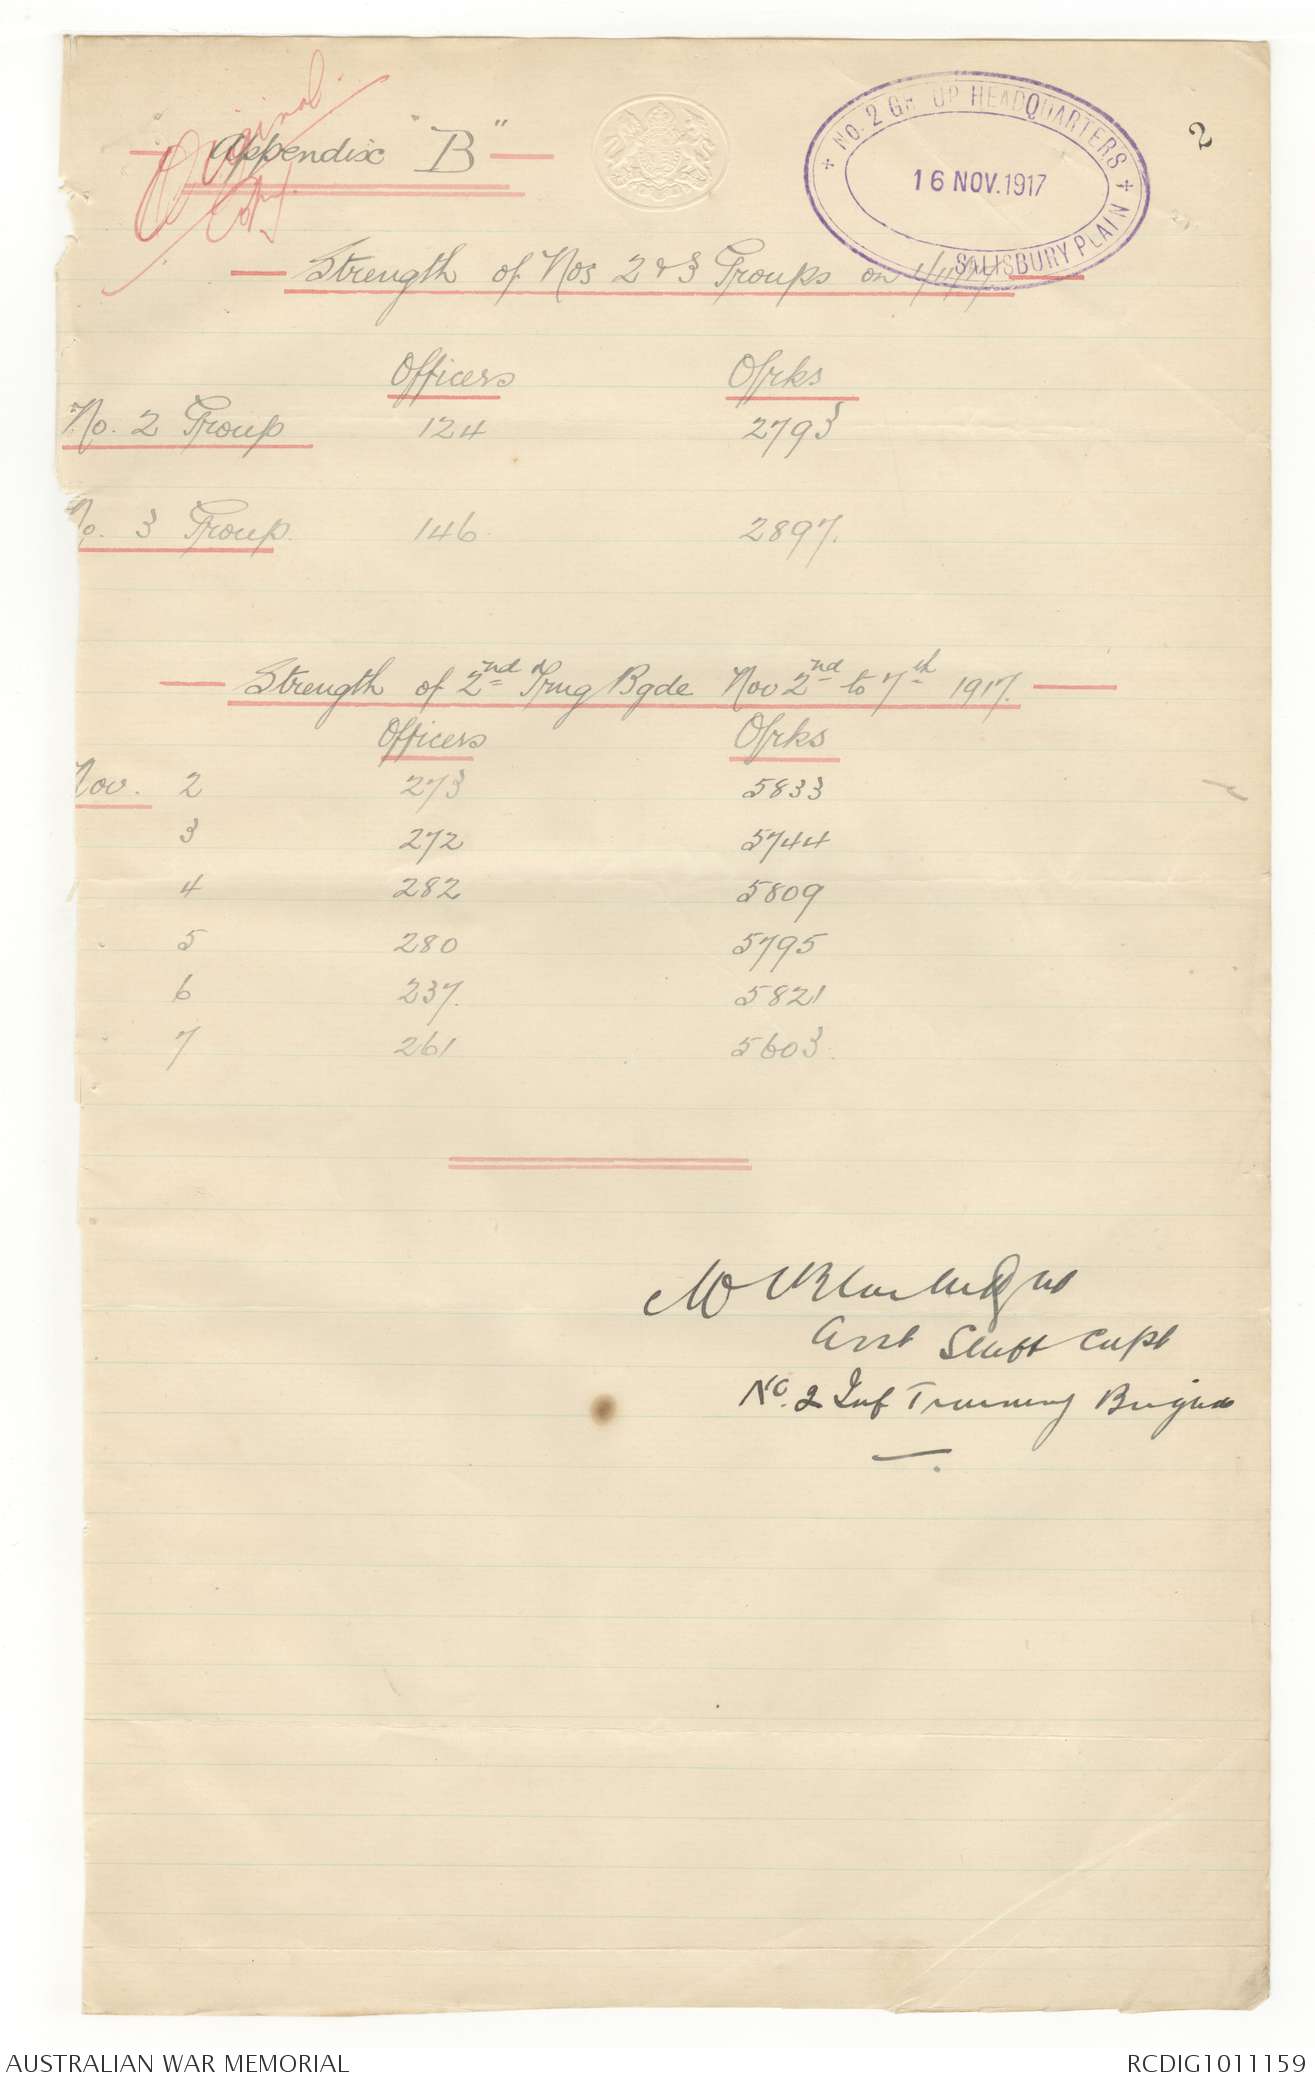 Original
Copy
2
Appendix "B"
+ No. 2 GR UP HEADQUARTERS +
16 NOV. 1917
SALISBURY PLAIN
Strength of Nos 2 & 3 Groups on 1/11/17
Officers O/rks
No. 2 Group 124 2793
No. 3 Group. 146. 2897.
Strength of 2nd Trng Bgde Nov 2nd to 7th 1917.
Officers O/rks
Nov. 2 273 5833
3 272 5744
4 282 5809
5 280 5795
6 237. 5821
7 261 5603.
Asst Staff Capt
No. 2 Inf Training Brigade
AUSTRALIAN WAR MEMORIAL RCDIG1011159